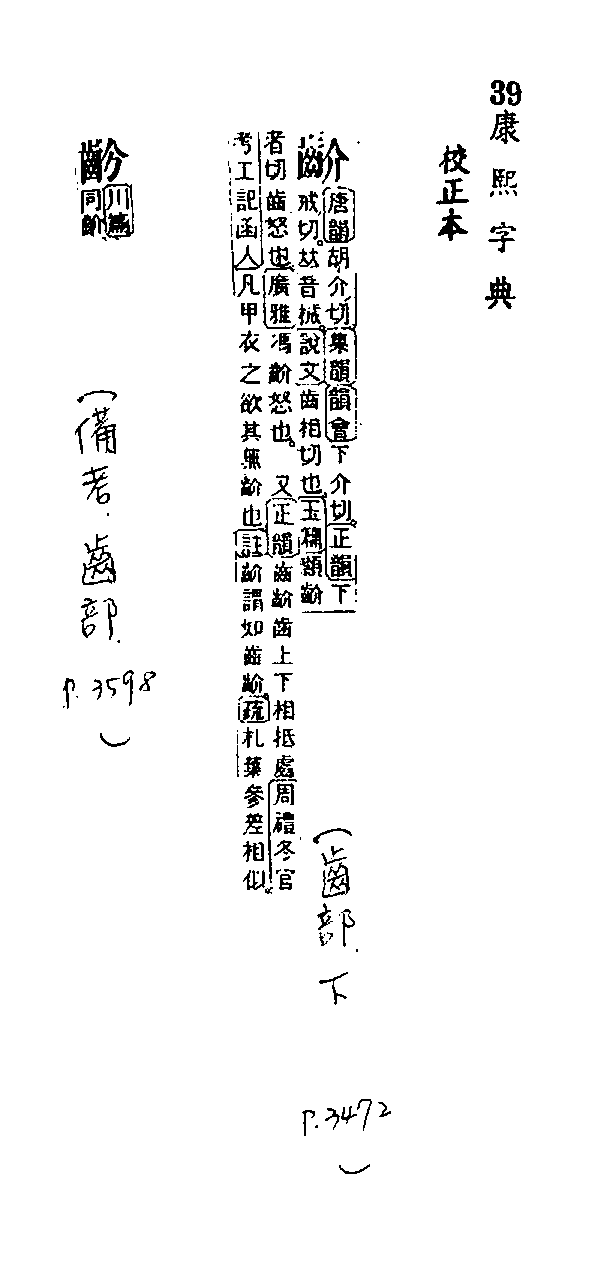 39
康熙字典
校正本
齘
唐韻胡介切集韻韻會下介切正韻下
戒切𠀤音械說文齒相切也玉篇類齘
者切齒怒也廣雅馮齘怒也又正韻齒齘齒上下相抵處周禮冬官
考工記函人凡甲衣之欲其無齘也註齘謂如齒齘疏札葉參差相似
(齒部下
P.3472
)
川篇
同齘
(備考.齒部.
P.3598
)